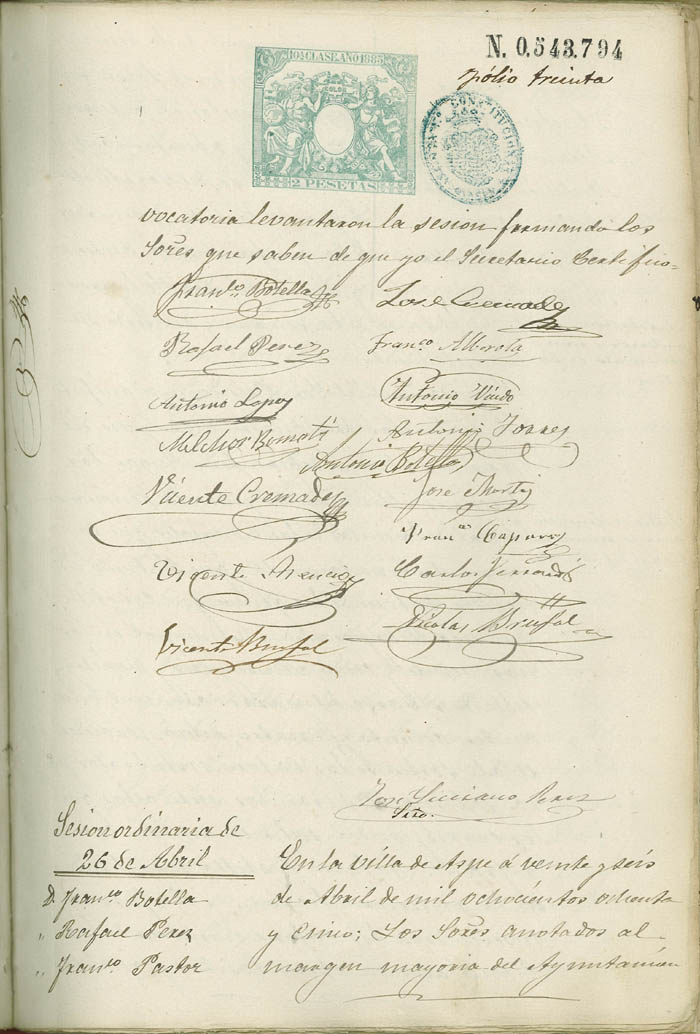 N. 0.543.794
fólio treinta
10ª CLASE. AÑO 1885
2 PESETAS
CONSTITUCION
vocatoria levantaron la sesion firmando los
Sores que saben de que yo el Secretario Certifico.
Franco. Botella
José Cremades
Rafael Perez
Franco Alberola
Antonio Lopez
Antonio
Melchor
Antonio Torres
Antonio Botella
Vicente Cremades
José
Fran
Vicente Asencio
Carlos
Vicente Brufal
Nicolas Brufal
José Perez
Srio.
Sesion ordinaria de
26 de Abril
D. Franco Botella
" Rafael Perez
" Franco Pastor
En la villa de Aspe á veinte y seis
de Abril de mil ochocientos ochenta
y cinco; Los Sores anotados al
margen mayoria del Ayuntamien